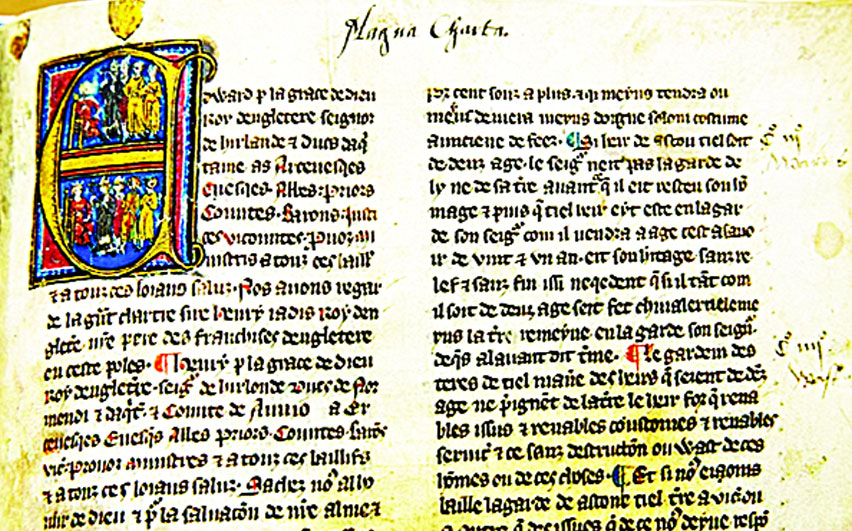 Magna Charta.
Edward p la grace de dieu
Roy dengletere seignor
de hirlande ⁊ Ducs daq̄
taine. as Arceuesqes
Euesqes. Abbes. Priors
Countes. Barons. Justi
ces vicountes. Prouoz
ministres a touz ces baill
⁊ a touz ces loiaus saluz. Nos auons regar
de la gn̄t chartre sire henry iadis Roy den
glet̄re. nr̄e pere des fraunchises dengletere
en ceste poles. ¶ Henry p la grace de dieu
roy dengletr̄e. seigr̄ de hirlonde ducs de Nor
mendi ⁊ daq̄t. ⁊ Counte de a Er
ceuesqes Euesqs Abbes Priors. Countes.
vic. prouoz ministres ⁊ a touz ces baillifs
⁊ a touz ces loiaus saluz. Sachez no9 
de dieu ⁊ p̄ la saluacōn de nr̄e alme ⁊
cent souz a plus. ⁊ qi meyns tendra ou
deuera meyns doigne solom costume
aunciene de feez. ¶ Si leir de ascou tiel soit
de deinz age. le seigr̄ neit pas la garde de
ly ne de sa tr̄e auant q̄ il eit resceu soun
mage ⁊ puis q̄ tiel heir eyt este en la gar
de son seigr̄ com il uendra a age cest asauo
ir de vint ⁊ vn an. eit son heritage. sanz re
lef ⁊ sanz fin issi neqedent q̄ si il tāt com
il soit de deinz age seit fet chiualer
la tr̄e remeyne. en la garde son seign̄.
deqs al auant dit t̄me. ¶ Le gardein des
teres de tiel man̄e des heirs q̄ seient de dēz
age. ne p̄ignēt de la tr̄e le heir forq̄ rena
bles issus ⁊ renables coustomes ⁊ renables
seruic̄ ⁊ ce sanz destructōn ou wast de ces
hōmes ou de ces choses. ¶ Et si no9 eioms
baille la garde de ascone tiel. tr̄e a vic̄ ou
a autre q̄ des issues q̄ de ce no9 deyue respō